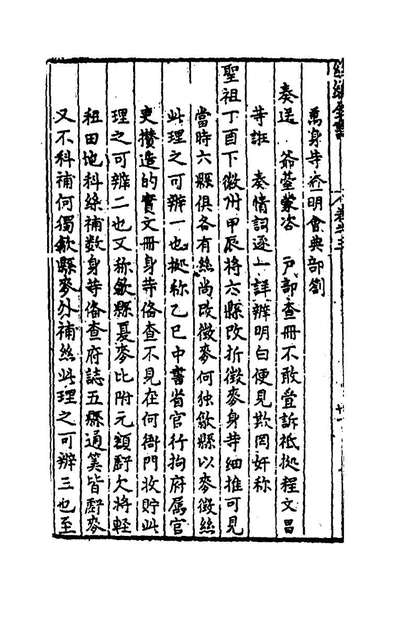 萬身等齊明會典部劄
奏送　爺臺蒙咨　戶部查冊不敢壹訴祗據程文昌
等誑　奏情詞逐上詳辦明白便見欺罔奸称
聖祖丁酉下徽附甲辰將六縣改折徵麥身等細推可見
當時六縣俱各有絲尚改徵麥何独歙縣以麥徵絲
此理之可辦一也据称乙巳中書省官行拘府属官
吏攒造的實文冊身等俻查不見在何衙門收貯此
理之可辦二也又称歙縣夏麥比附元額虧欠將輕
租田地科絲補数身等俻查府誌五縣通筭皆虧麥
又不科補何獨歙縣麥外補絲此理之可辦三也至